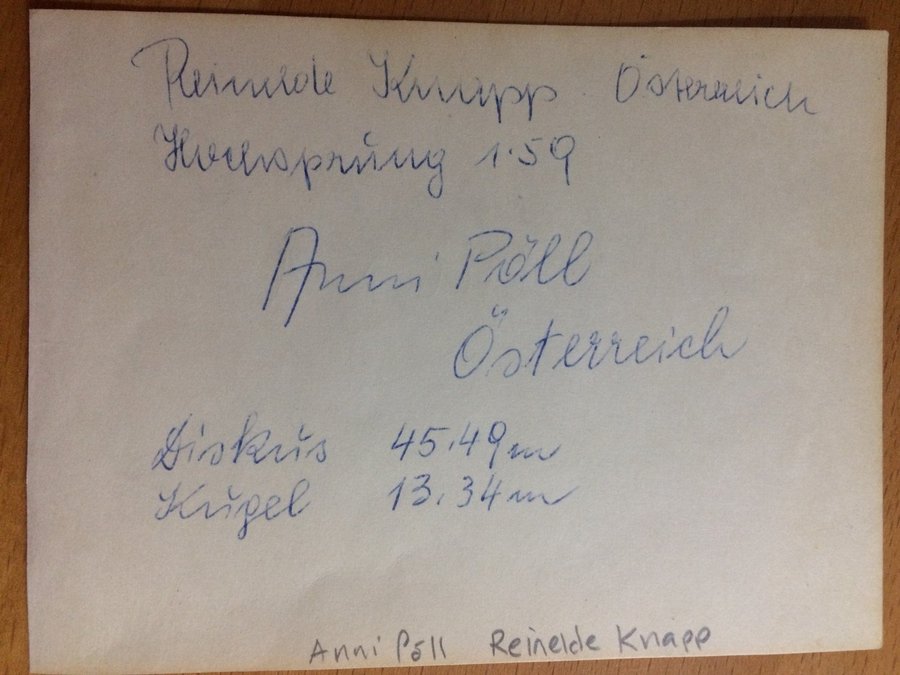 Reinelde Knapp Österreich
Hochsprung 1.59
Anni Pöll
Österreich
Diskus 45.49m
Kugel 13.34m
Anni Pöll Reinelde Knapp